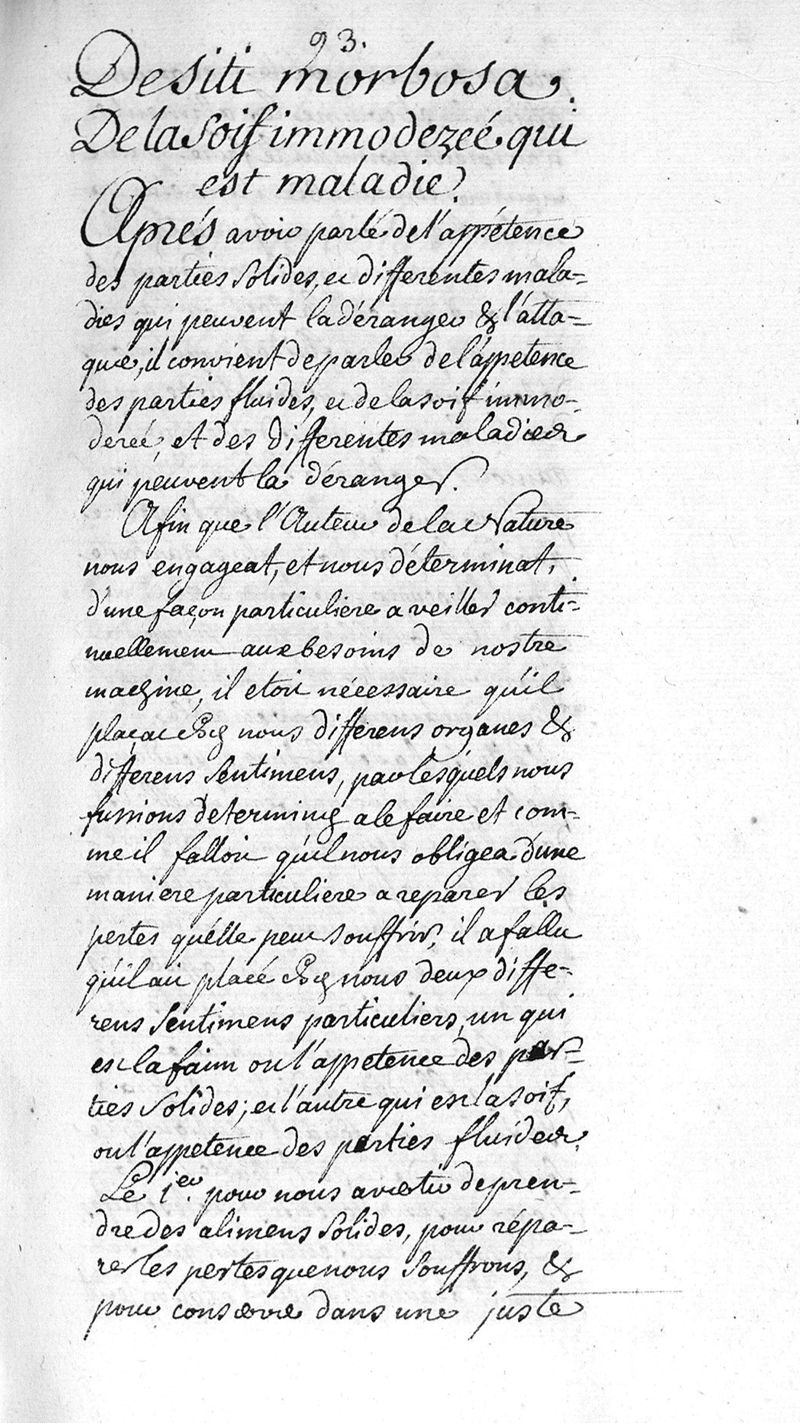 93.
De siti morbosa.
De la soif immoderéé qui
est maladie.
Aprés avoir parlé de l'appétence
des parties solides, et differentes mala-
dies qui peuvent la déranger & l'atta-
quer, il convient de parler de l'appetence
des parties fluides, et de la soif immo-
dereé, et des differentes maladies
qui peuvent la déranger.
Afin que l'Auteur de la Nature
nous engageat, et nous déterminat,
d'une façon particuliere a veiller conti-
nuellement aux besoins de nostre
machine, il etoit nécessaire qu'il
plaçat chez nous differens organes &
differens sentimens, par lesquels nous
fussions determinez a le faire et com-
me il falloit qu'il nous obligea d'une
maniere particuliere a reparer les
pertes qu'elle peut souffrir, il a fallu
qu'il ait placé chez nous deux diffe-
rens sentimens particuliers, un qui
est la faim ou l'appetence des par-
ties solides; et l'autre qui est la soif,
ou l'appetence des parties fluides.
Le 1er. pour nous avertir de pren-
dre des alimens solides, pour répa-
rer les pertes que nous souffrons, &
pour conserver dans une juste